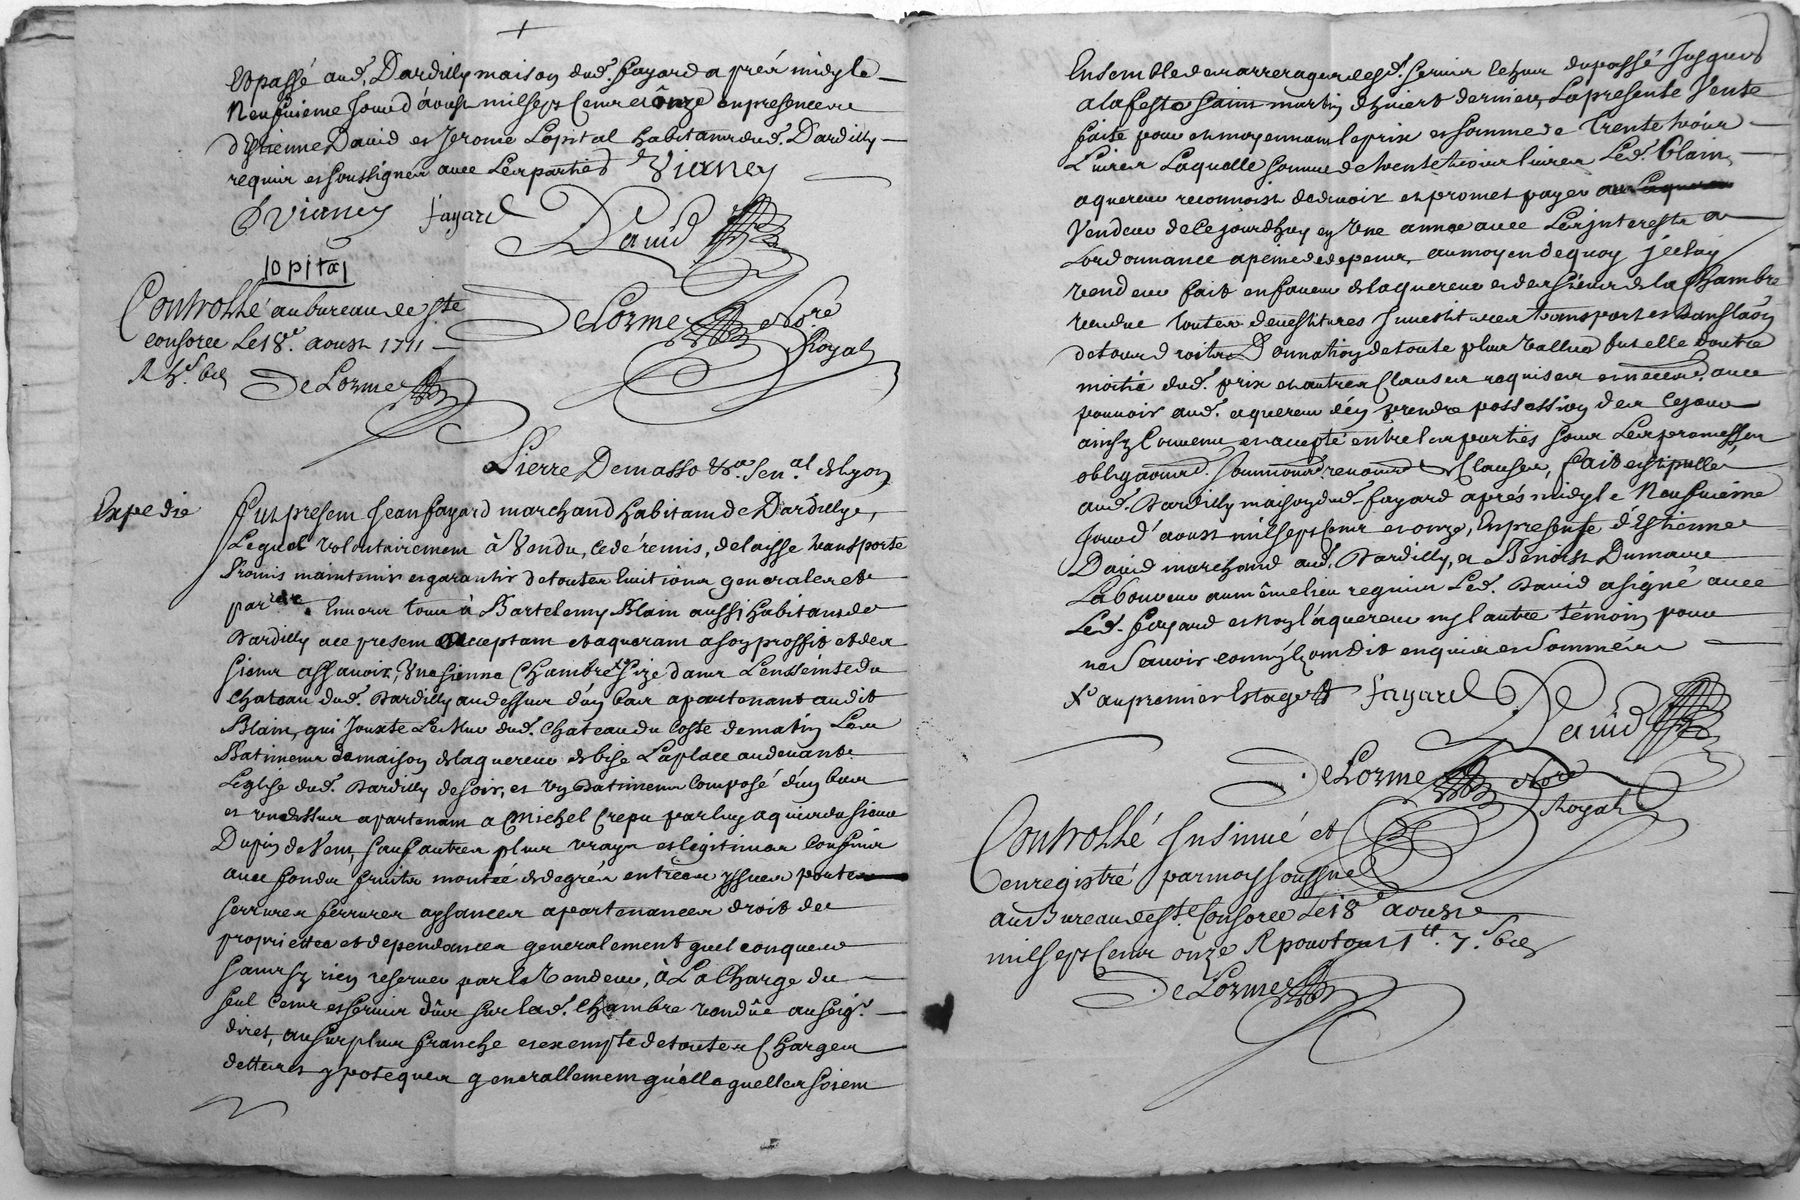 Et passé aud. Dardilly maison dud. fayard apres midy le
Neufvieme Jour d'aoust mil sept Cent et onze en presence
d'Estienne David et Jerome Lopital habitans dud. Dardilly
requis et soussignés avec Les parties Vianey
Vianey fayard David
lopital
Controllé au bureau de Ste
consorce Le 18e. aoust 1711
DeLorme
DeLorme Nore
Royal
Pierre Demasso &a. Sen.al de Lyon
Expedie
fut present Jean fayard marchand habitant de Dardilly,
Lequel volontairement à Vendu, cedé remis, delaisse transporte
Promis maintenir et garantir de toutes evitions generales et
par.res Envers tous à Bartelemy Blain aussi habitant de
Dardilly ace present acceptant et aquerant a son proffit et des
siens assavoir, Une sienne Chambre Size dans L'ensseinte du
Chateau dud. Dardilly au dessus d'un bas apartenant audit
Blain, qui Jouxte Le Mur dud. Chateau du Coste de matin Les
Batimens de maison de laquereur de bise La place au devant
L'eglise dud. Dardilly de soir, et un Batiment Composé d'un bas
et un dessus apartenant a Michel Crepu par luy aquis du sieur
Dupin de Vent, sauf autres plus vrays et legitimes Confins
avec fonds fruits montée et degrés entrées yssues portes
serrures ferrures aysances apartenances droit de
propriettes et dependances generalement quelconques
sans sy rien reserver par le Vendeur, à La Charge du
seul Cens et servis dûs sur lad. Chambre vendûe au seig.r
diret, au surplus franche et exempte de toutes Charges
dettes et ypoteques generallement quelles quelles soient
Ensemble des arrerages desd. servis le tous du passé Jusques
a la feste saint martin d'hivert dernier, La presente Vente
faite pour et moyennant le prix et somme de trente trois
Livres Laquelle somme de trente trois livres Led. Blain
aquereur reconnoist de devoir et promet payer au
Vendeur de ce jourdhuy en Une année avec Les interests a
Lordonnance a peine de depens, au moyen de quoy jceluy
vendeur fait en faveur de laquereur et des siens de la Chambre
vendue toutes devestitures Jnvestitures transport et translaon
de tous droits Donnation de toute plus vallue fut elle doutre
moitié dud. prix et autres Clauses requises et necess. avec
pouvoir aud. aquereur d'en prendre possession des ce jour
ainsy Convenu et accepté entre les parties sous Les promesses
obligaons. soumissions. renoons. et Clauses, fait et stipullé
aud. Dardilly maison dud. fayard aprés midy le Neufvieme
Jour d'aoust mil sept Cent et onze, En presense d'Estienne
David marchand aud. Dardilly, et Benoist Dumaure
Laboureur au même lieu requis Led. David a signé avec
Led. fayard et non l'aquereur ny l'autre témoin pour
ne Scavoir comm'ils ont dit enquis et Sommés
X au premier Estage fayard David
DeLorme Nore
Royal
Controllé Insinué et
enregistré par moy soussigné
au Bureau de Ste. Consorce Le 18e aoust
mil sept Cent onze R pour tout 1tt. 7s. 6d
DeLorme